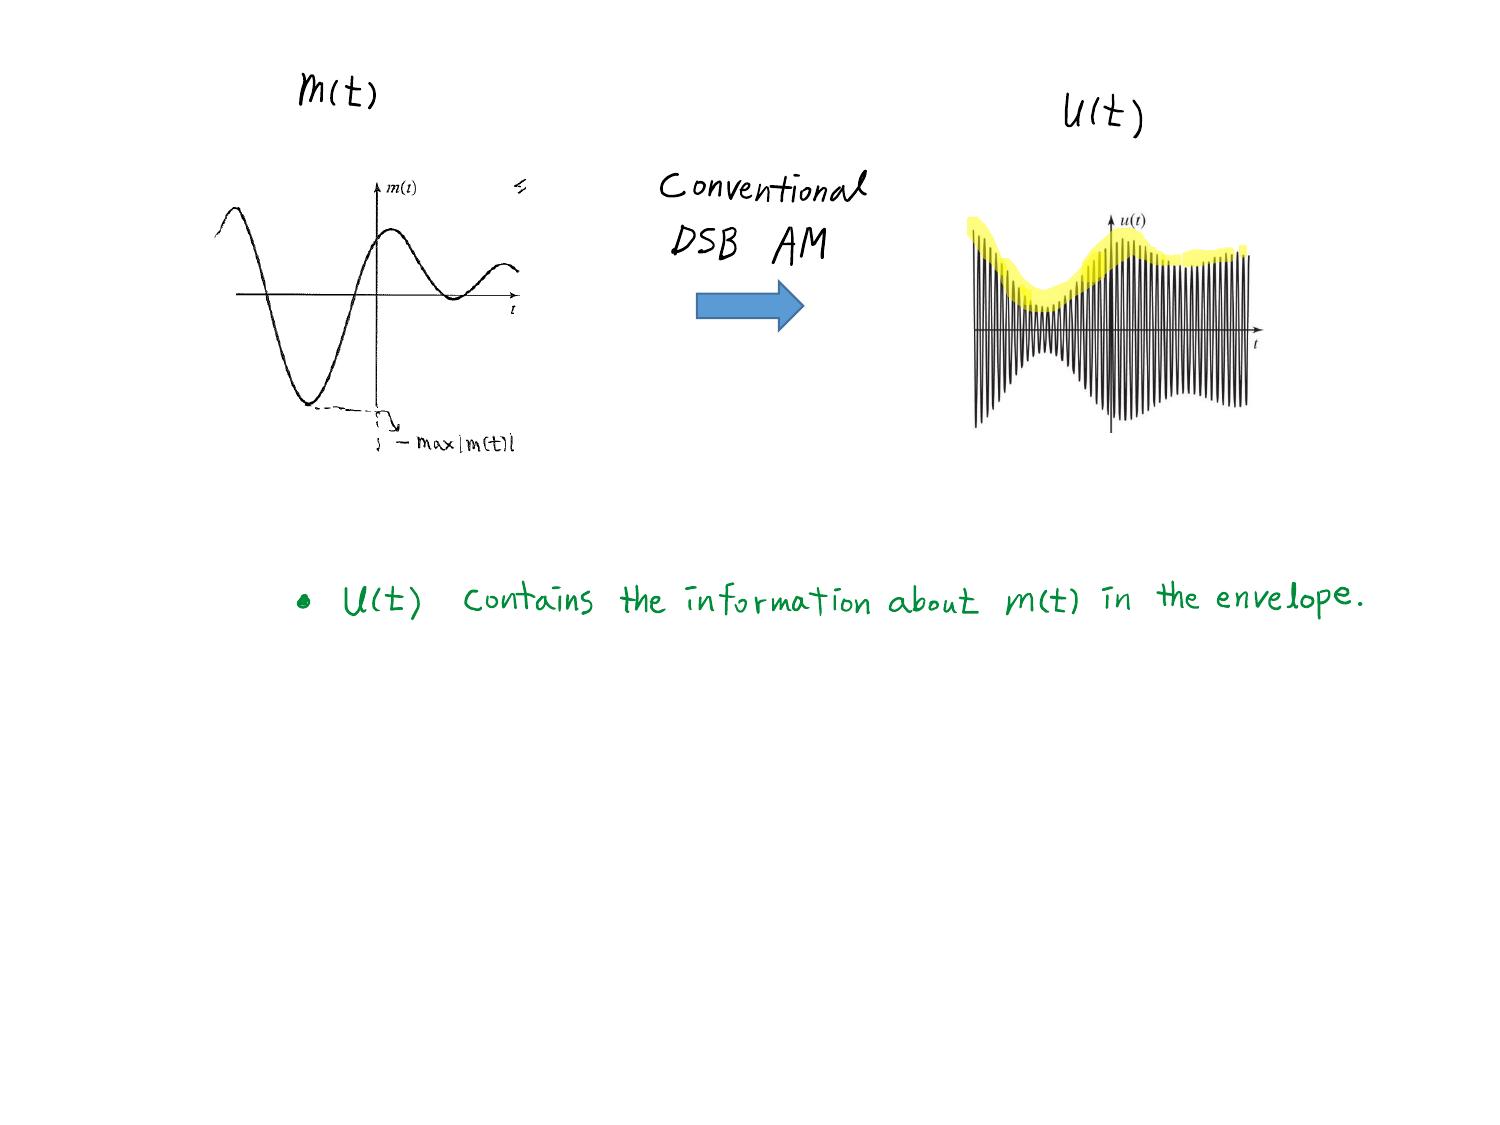 m(t)
u(t)
Conventional
DSB AM
m(t)
t
- max|m(t)|
u(t)
t
• u(t) contains the information about m(t) in the envelope.